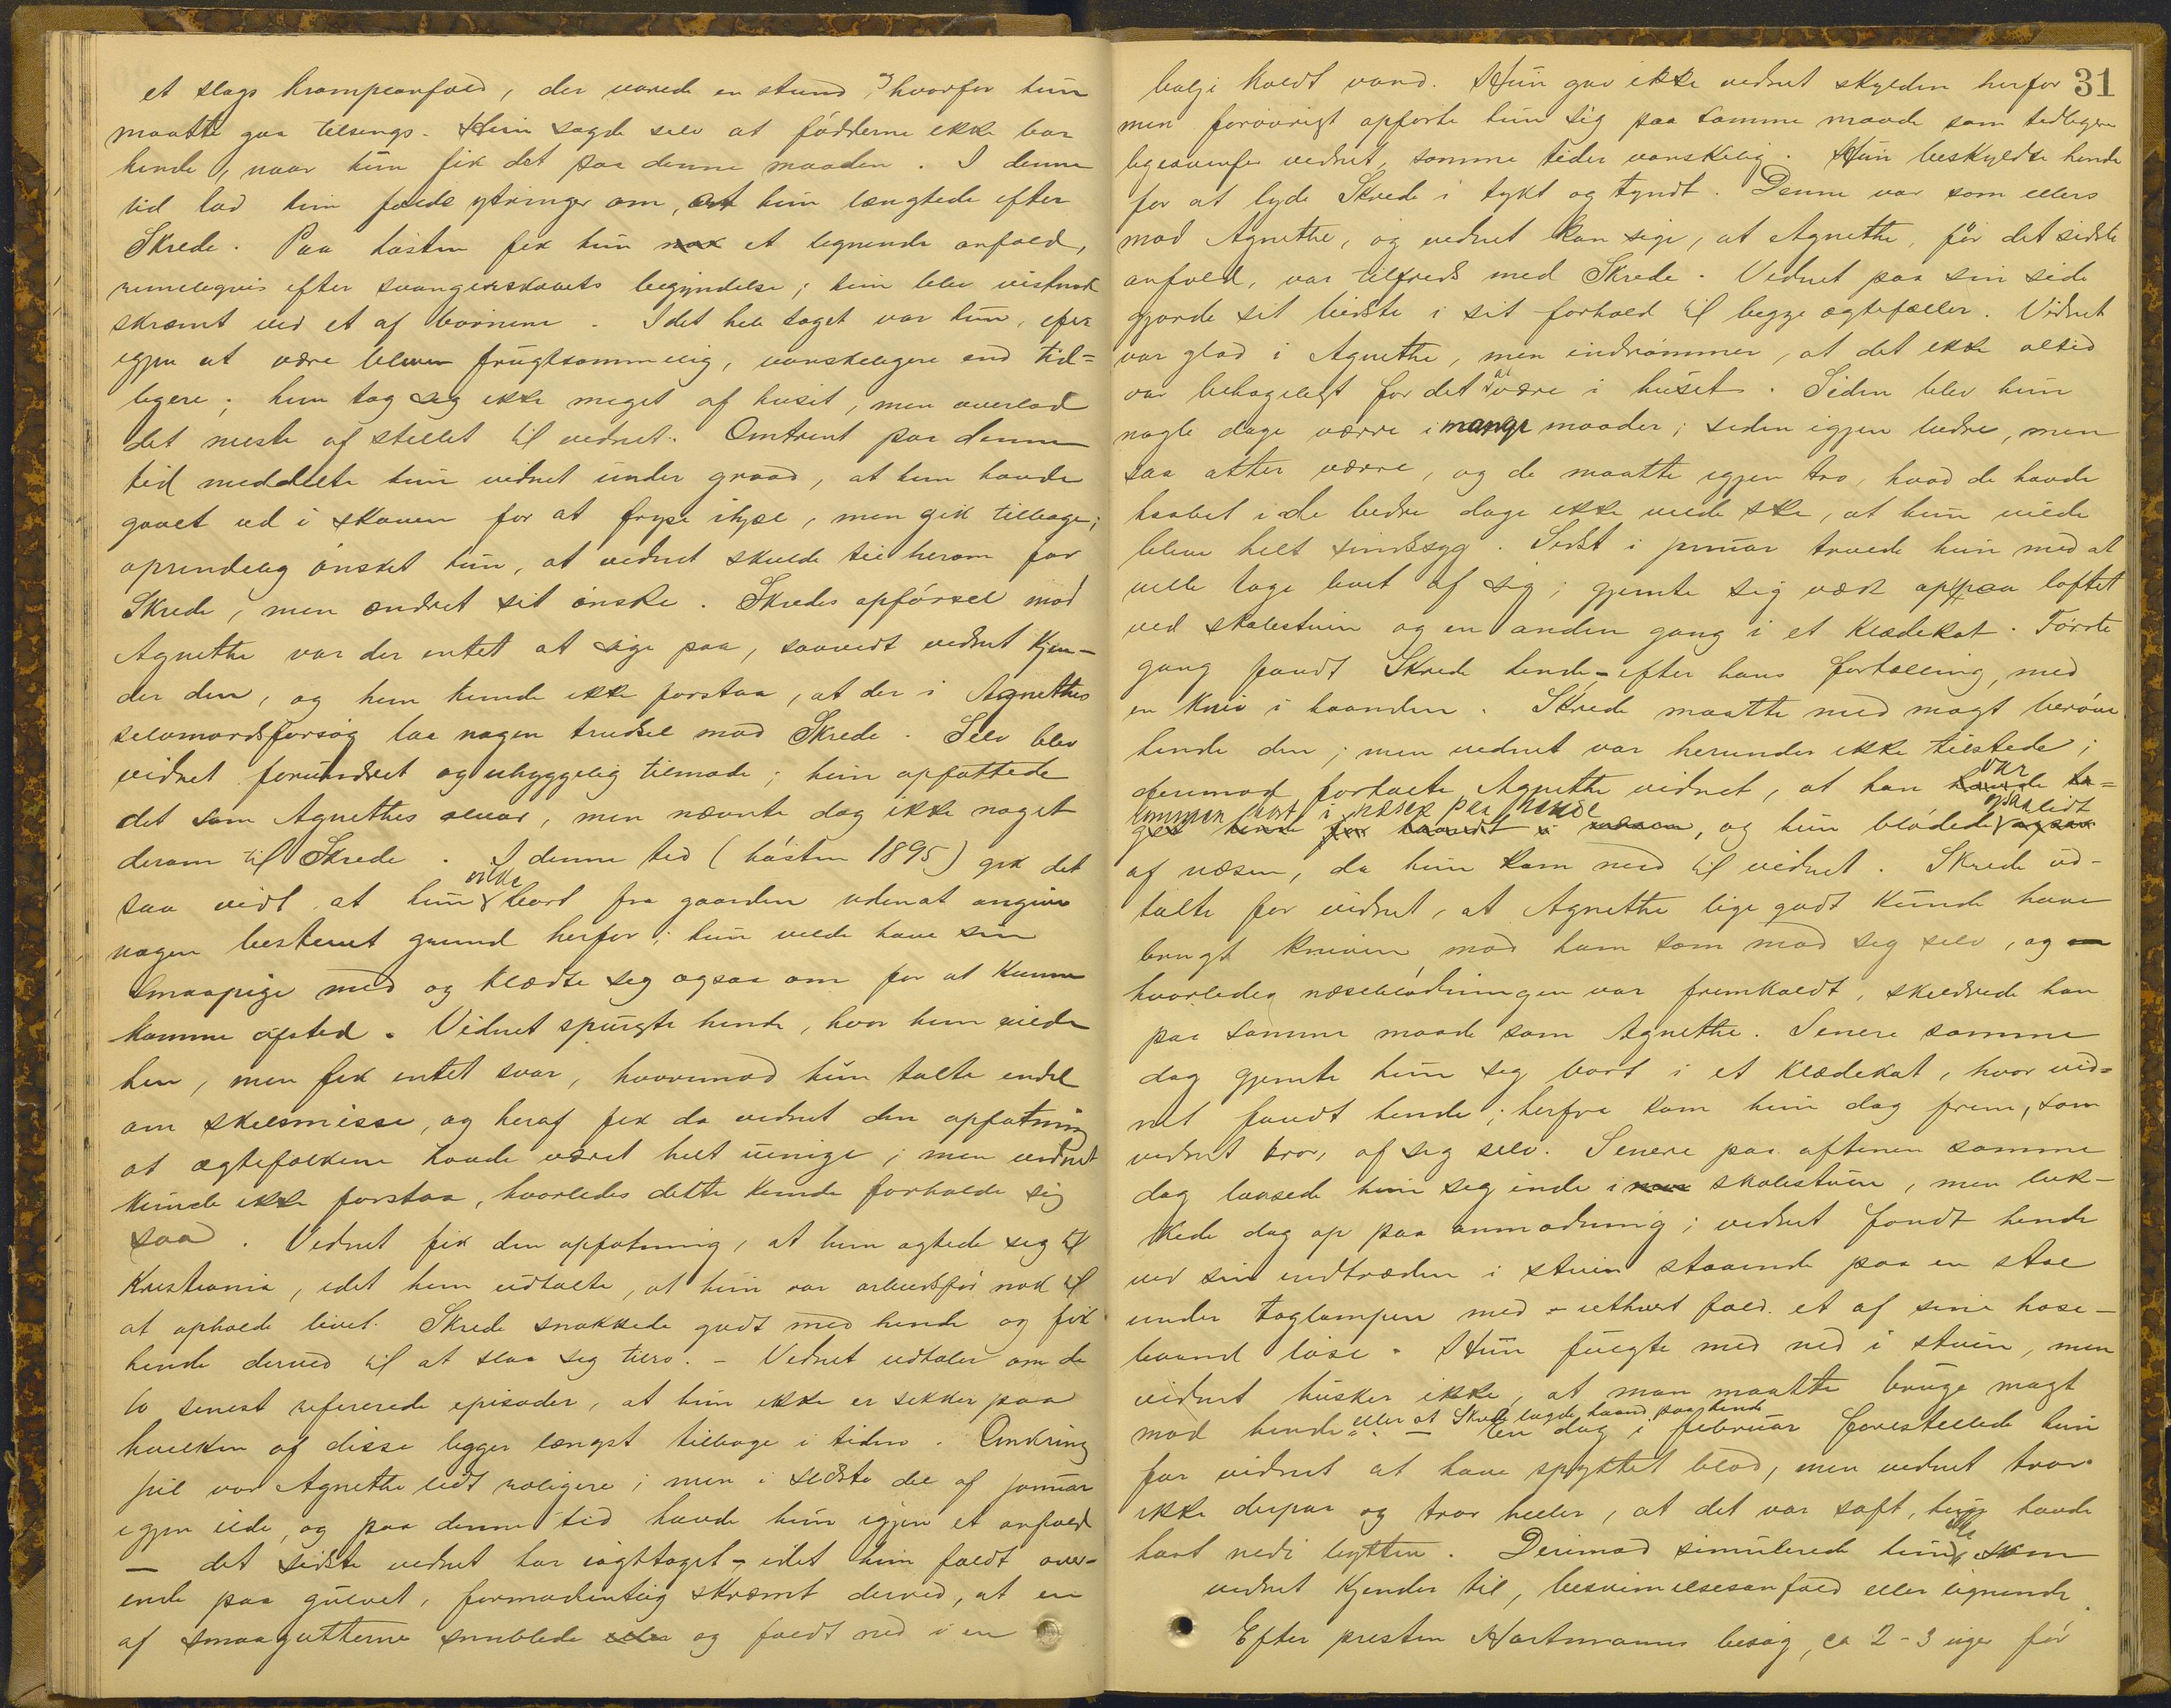 et slags krampeanfald, der varede en stund, hvorfor hun
maatte gaa tilsengs. Hun sagde selv at fødderne ikke bar
hende, naar hun fik det paa denne maaden. I denne
tid lod hun falde ytringer om, at hun længtede efter
Skrede. Paa høsten fik hun nok et lignende anfald,
rimeligvis efter svangerskabets begyndelse; hun blev vistnok
skræmt ved et af børnene. I det hele taget var hun, efter
igjen at være bleven frugtsommelig, vanskeligere end tid=
ligere; hun tog sig ikke meget af huset, men overlod
det meste af stellet til vidnet. Omtrent paa denne
tid meddelte hun vidnet under graad, at hun havde
gaaet ud i skoven for at fryse ihjel, men gik tilbage;
oprindelig ønsket hun, at vidnet skulde tie herom for
Skrede, men ændret sit ønske. Skredes opførsel mod
Agnethe var der intet at sige paa, saavidt vidnet kjen-
der den, og hun kunde ikke forstaa, at der i Agnethes
selvmordsforsøg laa nogen trudsel mod Skrede. Selv blev
vidnet forundret og uhyggelig tilmode; hun opfattede
det som Agnethes alvor, men nævnte dog ikke noget
derom til Skrede. I denne tid (høsten 1895) gik det
saa vidt at hun vilde bort fra gaarden uden at angive
nogen bestemt grund herfor; hun vilde have sin
smaapige med og klædte sig ogsaa om for at kunne
komme afsted. Vidnet spurgte hende, hvor hun vilde
hen, men fik intet svar, hvorimod hun talte endel
om skilsmisse, og heraf fik da vidnet den opfatning
at ægtefolkene havde været helt uenige; men vidnet
kunde ikke forstaa, hvorledes dette kunde forholde sig
saa. Vidnet fik den opfatning, at hun agtede sig til
Kristiania, idet hun udtalte, at hun var arbeidsfør nok til
at opholde livet. Skrede snakkede godt med hende og fik
hende derved til at slaa sig tilro. - Vidnet udtaler om de
to senest refererede episoder, at hun ikke er sikker paa
hvilken af disse ligger længst tilbage i tiden. Omkring
jul var Agnethe lidt roligere; men i sidste del af januar
igjen ilde, og paa denne tid havde hun igjen et anfald
- det sidste vidnet har iagttaget -, idet hun faldt over-
ende paa gulvet, formodentlig skræmt derved, at en
af smaagutterne snublede og faldt ned i en
31
balje koldt vand. Hun gav ikke vidnet skylden herfor
men forøvrigt opførte hun sig paa samme maade som tidligere
ligeoverfor vidnet, somme tider vanskelig. Hun beskyldte hende
for at lyde Skrede i tykt og tyndt. Denne var som ellers
mod Agnethe, og vidnet kan sige, at Agnethe, før det sidste
anfald, var tilfreds med Skrede. Vidnet paa sin side
gjorde sit bedste i sit forhold til begge ægtefæller. Vidnet
var glad i Agnethe, men indrømmer, at det ikke altid
var behageligt for det at være i huset. Siden blev hun
nogle dage værre i mange maader; siden igjen bedre, men
saa atter værre, og de maatte igjen tro, hvad de havde
haabet i de bedre dage ikke vilde ske, at hun vilde
blive helt sindssyg. Sidst i januar truede hun med at
ville tage livet af sig; gjemte sig væk oppaa loftet
ved skolestuen og en anden gang i et klædekot. Første
gang fandt Skrede hende - efter hans fortælling, med
en kniv i haanden. Skrede maatte med magt berøve
hende den; men vidnet var herunder ikke tilstede;
derimod fortalte Agnethe vidnet, at han havde var
kommen bort i næsen paa hende, og hun blødede ogsaa lidt
af næsen, da hun kom ned til vidnet. Skrede ud-
talte for vidnet, at Agnethe lige godt kunde have
brugt kniven mod ham som mod sig selv, og
hvorledes næseblødningen var fremkaldt, skildrede han
paa samme maade som Agnethe. Senere samme
dag gjemte hun sig bort i et klædekot, hvor vid=
net fandt hende; herfra kom hun dog frem, som
vidnet tror, af sig selv. Senere paa aftenen samme
dag laasede hun sig inde i skolestuen, men luk-
kede dog op paa anmodning; vidnet fandt hende
ved sin indtræden i stuen staaende paa en stol
under taglampen med - i ethvert fald et af sine hose-
baand løse. Hun fulgte med ned i stuen, men
vidnet husker ikke, at man maatte bruge magt
mod hende eller at Skrede lagde haand paa hende. - En dag i februar forestillede hun
for vidnet at have spyttet blod, men vidnet tror
ikke derpaa og tror heller, at det var saft, hun havde
havt nedi bytten. Derimod simulerede hun ikke som
vidnet kjender til, besvimelsesanfald eller lignende.
Efter presten Hartmanns besøg, ca 2-3 uger før